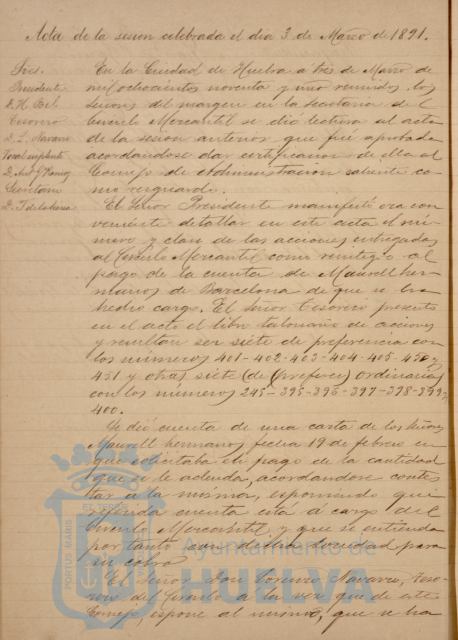 Acta de la sesion celebrada el dia 3 de Marzo de 1891.
Sres.
Presidente
D. H. Bel
Tesorero
D. L. Navarro
Vocal suplente
D. Ant. G. Ramos
Contador
D. J. de la
En la Ciudad de Huelva a tres de Marzo de
mil ochocientos noventa y uno reunidos los
Señores del margen en la Secretaria del
Circulo Mercantil se dió lectura al acta
de la sesion anterior que fué aprobada
acordandose dar certificacion de ella al
Consejo de Administracion saliente co-
mo resguardo.
El Señor Presidente manifestó era con-
veniente detallar en este acta el nú-
mero y clase de las acciones entregadas
al Circulo Mercantil como reintegro al
pago de la cuenta de Maurell her-
manos de Barcelona de que se ha
hecho cargo. El Señor Tesorero presento
en el acto el libro talonario de acciones
y resultan ser siete de preferencia con
los números 401-402-403-404-405-450 y
451 y otras siete (de prefeve) ordinarias
con los números 245-395-396-397-398-399 y
400.
Se dió cuenta de una carta de los Señores
Maurell hermanos fecha 19 de febrero en
que solicitaba el pago de la cantidad
que se le adeuda, acordandose contes-
tar a la misma, esponiendo que
referida cuenta está a cargo del
Circulo Mercantil y que se entienda
por tanto con dicha sociedad para
su cobro.
El Señor Don Lorenzo Navarro, Teso-
rero del Circulo a la vez que de este
Consejo, espone al mismo, que se ha
PORTUS MARIS
ET TERRE
Ayuntamiento de
HUELVA